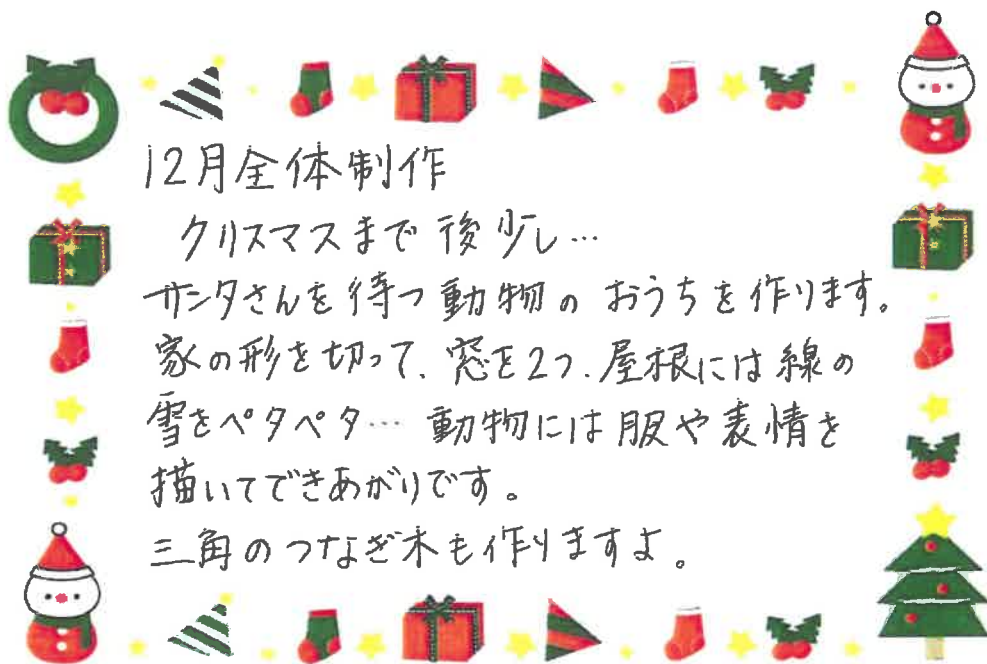 12月全体制作
クリスマスまで後少し…
サンタさんを待つ動物のおうちを作ります。
家の形を切って、窓を2つ、屋根には綿の
雪をペタペタ… 動物には服や表情を
描いてできあがりです。
三角のつなぎ木も作りますよ。